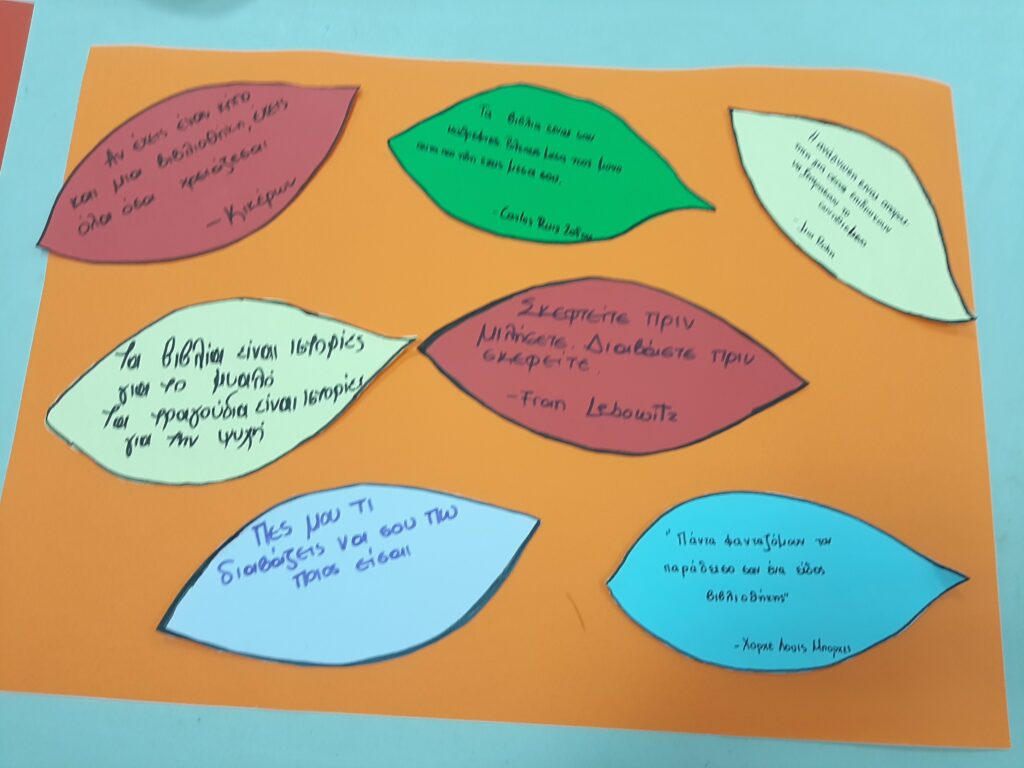 Αν έχεις έναν κήπο
και μια βιβλιοθήκη, έχεις
όλα όσα χρειάζεσαι
- Κικέρων
Τα βιβλία είναι σαν
καθρέφτες. βλέπεις μέσα τους μόνο
αυτό που ήδη έχεις μέσα σου.
- Carlos Ruiz Zafon
Η ανάγνωση είναι απαραί
για εκείνους επιδιώκουν
να ξεπεράσουν το
συνηθισμένο
- Jim Rohn
Τα βιβλία είναι ιστορίες
για το μυαλό
Τα τραγούδια είναι ιστορίες
για την ψυχή
Σκεφτείτε πριν
μιλήσετε. Διαβάστε πριν
σκεφείτε.
- Fran Lebowitz
Πες μου τι
διαβάζεις να σου πω
ποιος είσαι
"Πάντα φανταζόμουν τον
παράδεισο σαν ένα είδος
βιβλιοθήκης"
- Χορχε Λουις Μπορχες